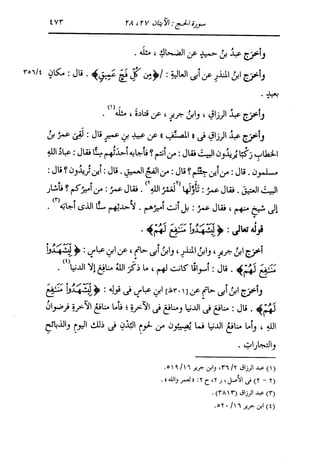 سورة الحج : الآيتان ٢٧، ٢٨
٤٧٣
وأخرَج عبدُ بنُ حميدٍ عن الضحاكِ، مثلَه .
وأخرَج ابنُ المنذرِ عن أبى العاليةِ : /﴿مِن كُلِّ فَجٍّ عَمِيقٍ﴾ . قال : مكانٍ
٣٥٦/٤
بعيدٍ .
وأخرَج عبدُ الرزاقِ، وابنُ جريرٍ، عن قتادةَ، مثلَه(١) .
وأخرَج عبدُ الرزاقِ فى «المصنَّفِ» عن عبيدِ بنِ عميرٍ قال : لَقِىَ عمرُ بنُ
الخطابِ ركبًا يُريدون البيتَ فقال : من أنتم؟ فأجابه أحدَثُهم سِنًّا فقال : عبادُ اللهِ
مسلمون . قال : من أين جِئْتُم؟ قال : من الفجِّ العميقِ . قال : أين تُريدون؟ قال :
البيتَ العتيقَ . فقال عمرُ : تأوَّلها (٢لعَمْرُ اللهِ٢) . فقال عمرُ : من أميرُكم؟ فأشار
إلى شيخٍ منهم، فقال عمرُ : بل أنت أميرُهم . لأحدثِهم سنًّا الذى أجابه(٣) .
قولُه تعالى : ﴿لِّيَشْهَدُوا مَنَٰفِعَ لَهُمْ﴾ .
أخرَج ابنُ جريرٍ، وابنُ المنذرِ، وابنُ أبى حاتمٍ، عن ابنِ عباسٍ : ﴿لِّيَشْهَدُوا
مَنَٰفِعَ لَهُمْ﴾ . قال : أسواقًا كانت لهم، ما ذكَر اللهُ منافعَ إلا الدنيا(٤) .
وأخرَج ابنُ أبى حاتمٍ عن [٣٠١ظ] ابنِ عباسٍ فى قولِه : ﴿لِّيَشْهَدُوا مَنَٰفِعَ
لَهُمْ﴾ . قال : منافعَ فى الدنيا ومنافعَ فى الآخرةِ؛ فأما منافعُ الآخرةِ فرضوانُ
اللهِ، وأما منافعُ الدنيا فما يُصِيبون من لحومِ البُدْنِ فى ذلك اليومِ والذبائحِ
والتجاراتِ .
(١) عبد الرزاق ٣٦/٢، وابن جرير ٥١٩/١٦ .
(٢ - ٢) فى الأصل، ر ٢، ح ٢ : «لعمر والله» .
(٣) عبد الرزاق (٣٨١٣) .
(٤) ابن جرير ٥٢٠/١٦ .